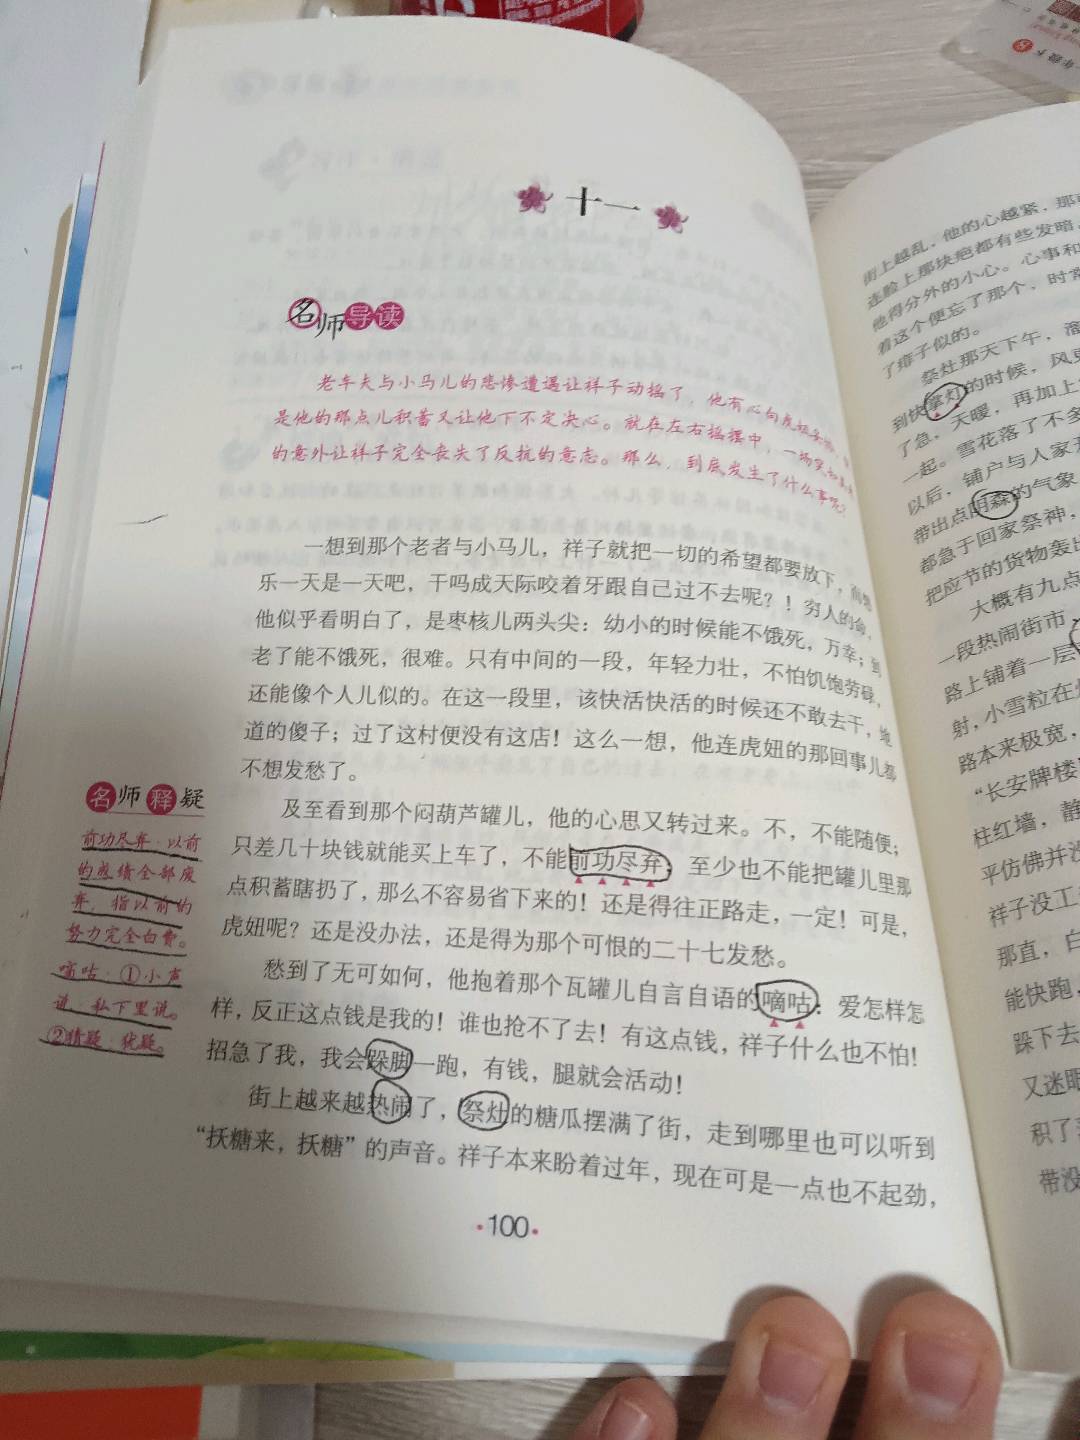 十一
名师导读
老车夫与小马儿的悲惨遭遇让祥子动摇了，他有心向虎妞
是他的那点儿积蓄又让他下不定决心。就在左右摇摆中，一场
的意外让祥子完全丧失了反抗的意志。那么，到底发生了什么事呢？
一想到那个老者与小马儿，祥子就把一切的希望都要放下，而想
乐一天是一天吧，干吗成天际咬着牙跟自己过不去呢？！穷人的命，
他似乎看明白了，是枣核儿两头尖：幼小的时候能不饿死，万幸；到
老了能不饿死，很难。只有中间的一段，年轻力壮，不怕饥饱劳碌，
还能像个人儿似的。在这一段里，该快活快活的时候还不敢去干，地
道的傻子；过了这村便没有这店！这么一想，他连虎妞的那回事儿都
不想发愁了。
及至看到那个闷葫芦罐儿，他的心思又转过来。不，不能随便；
只差几十块钱就能买上车了，不能前功尽弃；至少也不能把罐儿里那
点积蓄瞎扔了，那么不容易省下来的！还是得往正路走，一定！可是，
虎妞呢？还是没办法，还是得为那个可恨的二十七发愁。
愁到了无可如何，他抱着那个瓦罐儿自言自语的嘀咕：爱怎样怎
样，反正这点钱是我的！谁也抢不了去！有这点钱，祥子什么也不怕！
招急了我，我会跺脚一跑，有钱，腿就会活动！
街上越来越热闹了，祭灶的糖瓜摆满了街，走到哪里也可以听到
“扷糖来，扷糖”的声音。祥子本来盼着过年，现在可是一点也不起劲，
名师释疑
前功尽弃：以前
的成绩全部废
弃，指以前的
努力完全白费。
嘀咕：①小声
说，私下里说。
②猜疑，犹疑。
·100·
街上越乱，他的心越紧，那
连脸上那块疤都有些发暗。
他得分外的小心。心事和
着这个便忘了那个，时常
了痱子似的。
祭灶那天下午，溜
到快掌灯的时候，风更
了急，天暖，再加上
一起。雪花落了不多
以后，铺户与人家
带出点阴森的气象
都急于回家祭神，
把应节的货物轰出
大概有九点
一段热闹街市，
路上铺着一层
射，小雪粒在
路本来极宽，
“长安牌楼
柱红墙，静
平仿佛并没
祥子没工
那直，白
能快跑，
跺下去
又迷眼
积了
带没